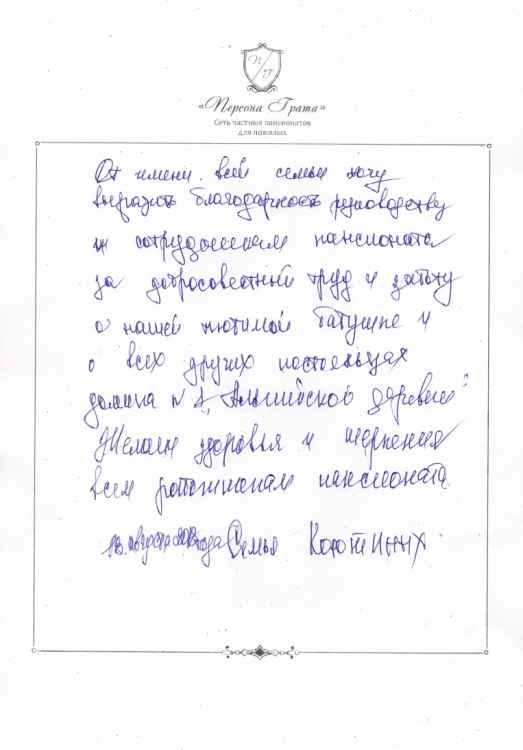 П
Г
«Персона Грата»
Сеть частных пансионатов
для пожилых
От имени всей семьи хочу
выразить благодарность руководству
и сотрудникам пансионата
за добросовестный труд и заботу
о нашей любимой бабушке и
о всех других постояльцах
домика №1 „Английской деревни"
Желаем здоровья и терпения
всем работникам пансионата.
18 августа года Семья Коротиных